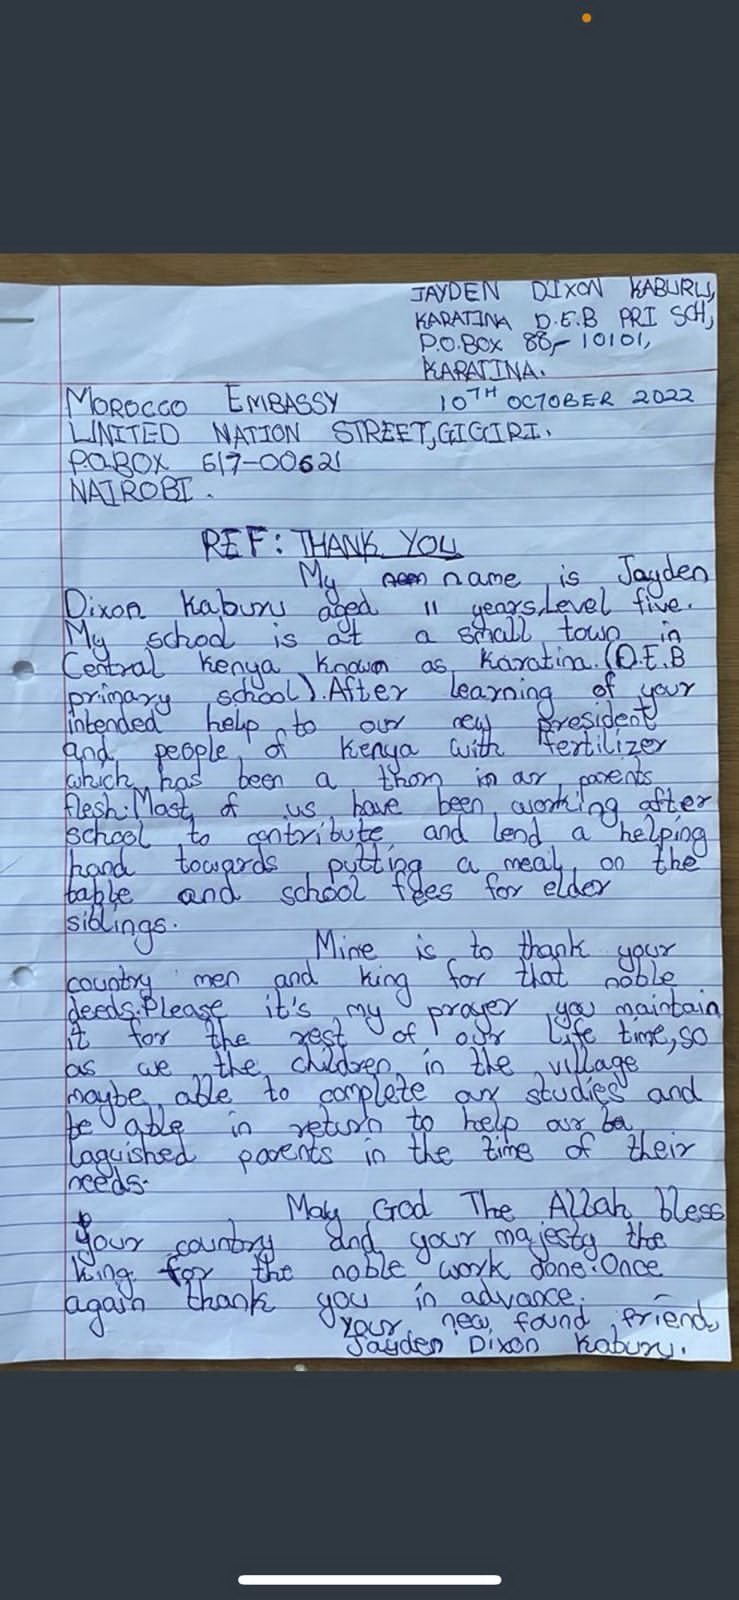 JAYDEN DIXON KABURU,
KARATINA D.E.B PRI SCH,
P.O.BOX 88,- 10101,
KARATINA.
MOROCCO EMBASSY 10TH OCTOBER 2022
UNITED NATION STREET,GIGIRI.
P.O.BOX 617-00621
NAIROBI.
REF: THANK YOU
My name is Jayden
Dixon Kaburu aged 11 years,Level five.
My school is at a small town in
Central Kenya known as Karatina.(D.E.B
primary school).After learning of your
intended help to our new president
and people of Kenya with fertilizer
which has been a thorn in our parents
flesh.Most of us have been working after
school to contribute and lend a helping
hand towards putting a meal on the
table and school fees for elder
siblings.
Mine is to thank your
country men and king for that noble
deeds.Please it's my prayer you maintain
it for the rest of our life time,so
as we the children in the village
maybe able to complete our studies and
be able in return to help our
laguished parents in the time of their
needs.
May God The Allah bless
your country and your majesty the
king for the noble work done.Once
again thank you in advance.
Your new found friend,
Jayden Dixon Kaburu.